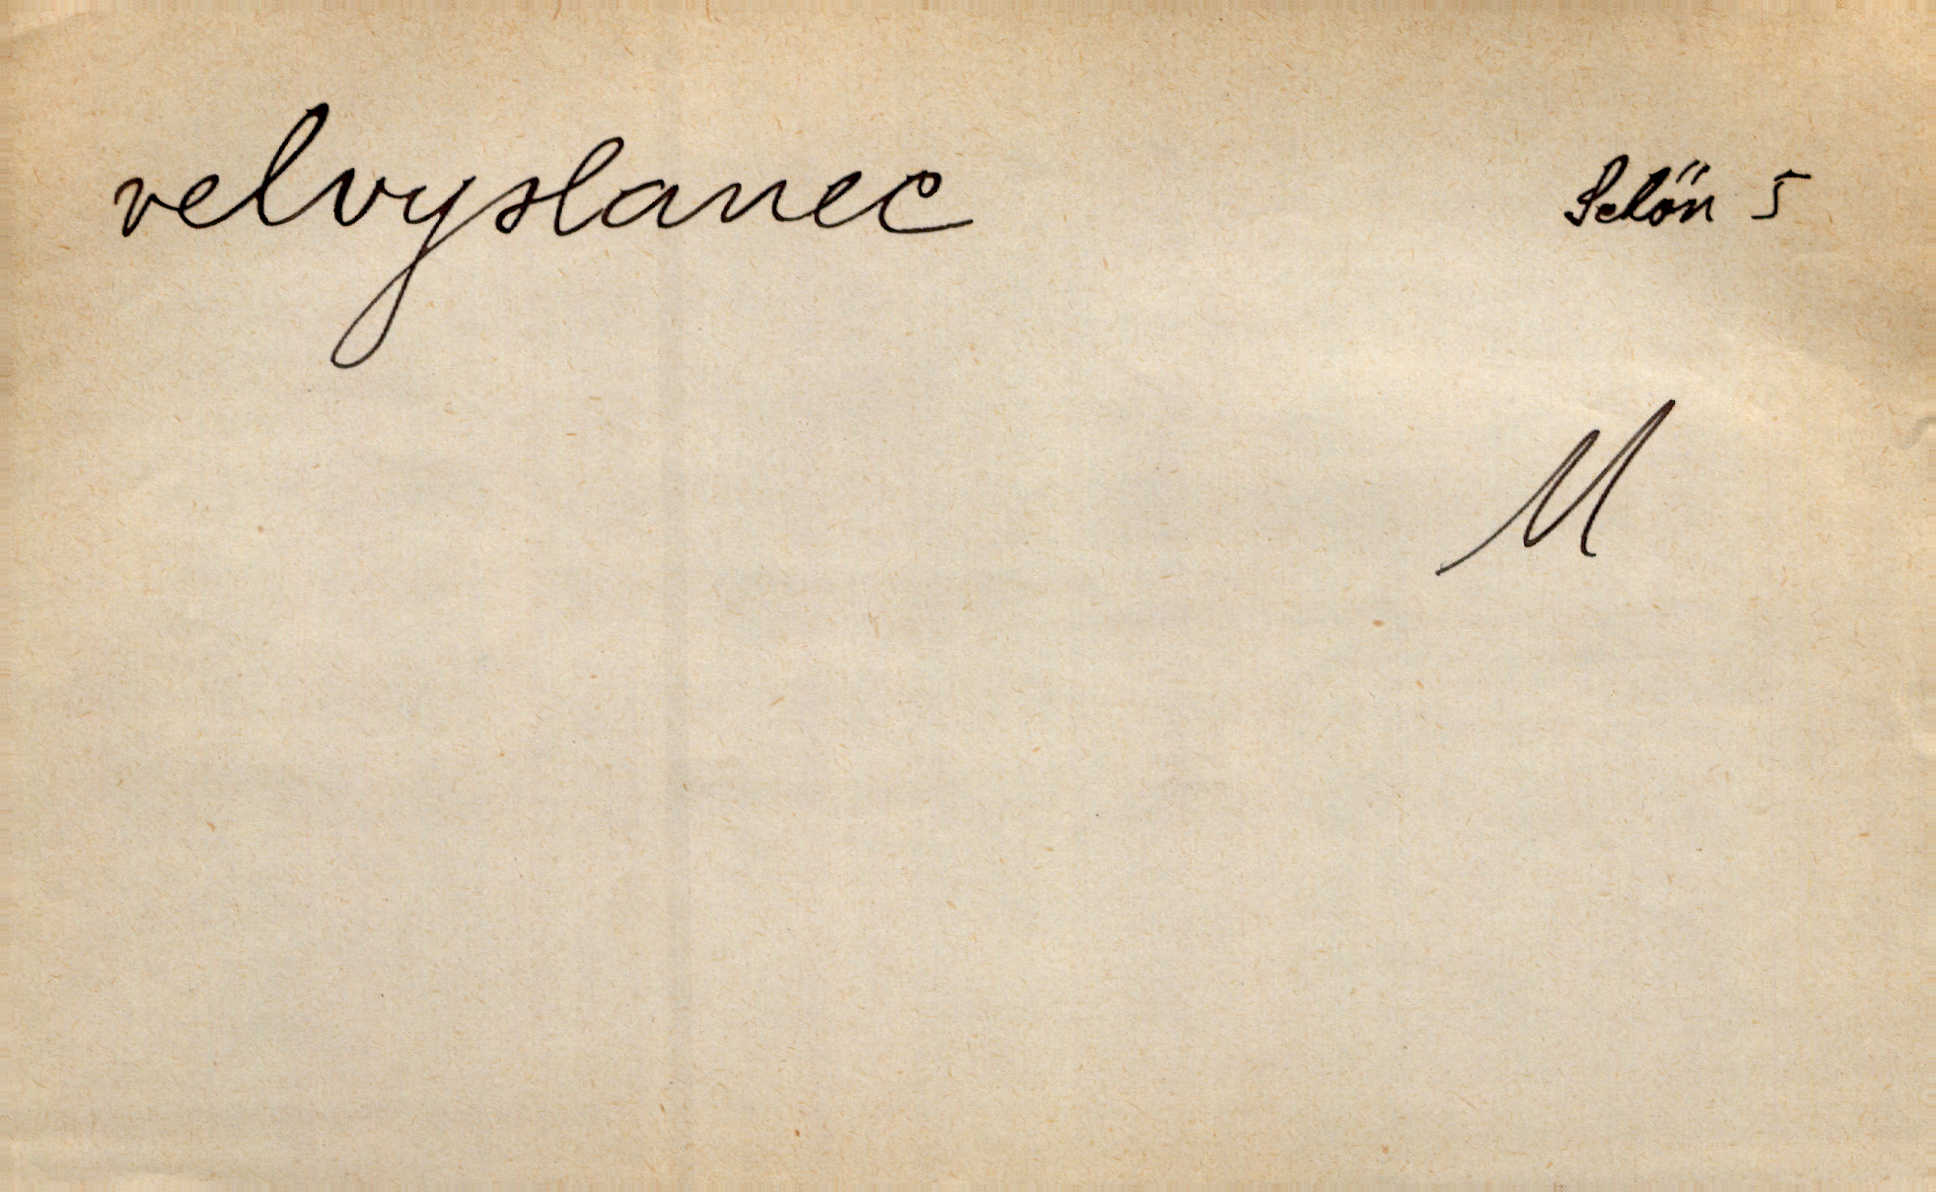 velvyslanec
Schön 5
M